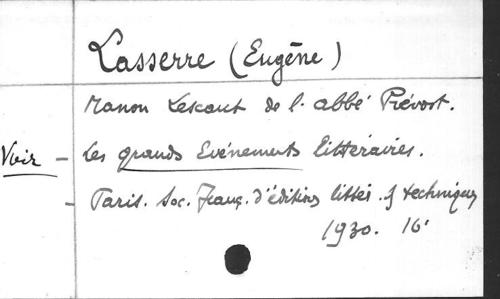 Lasserre (Eugène)
Manon Lescaut de l'abbé Prévost.
Voir - Les grands Evénements littéraires.
- Paris. Soc. Franç. d'éditions littér. & techniques
1930. 16°